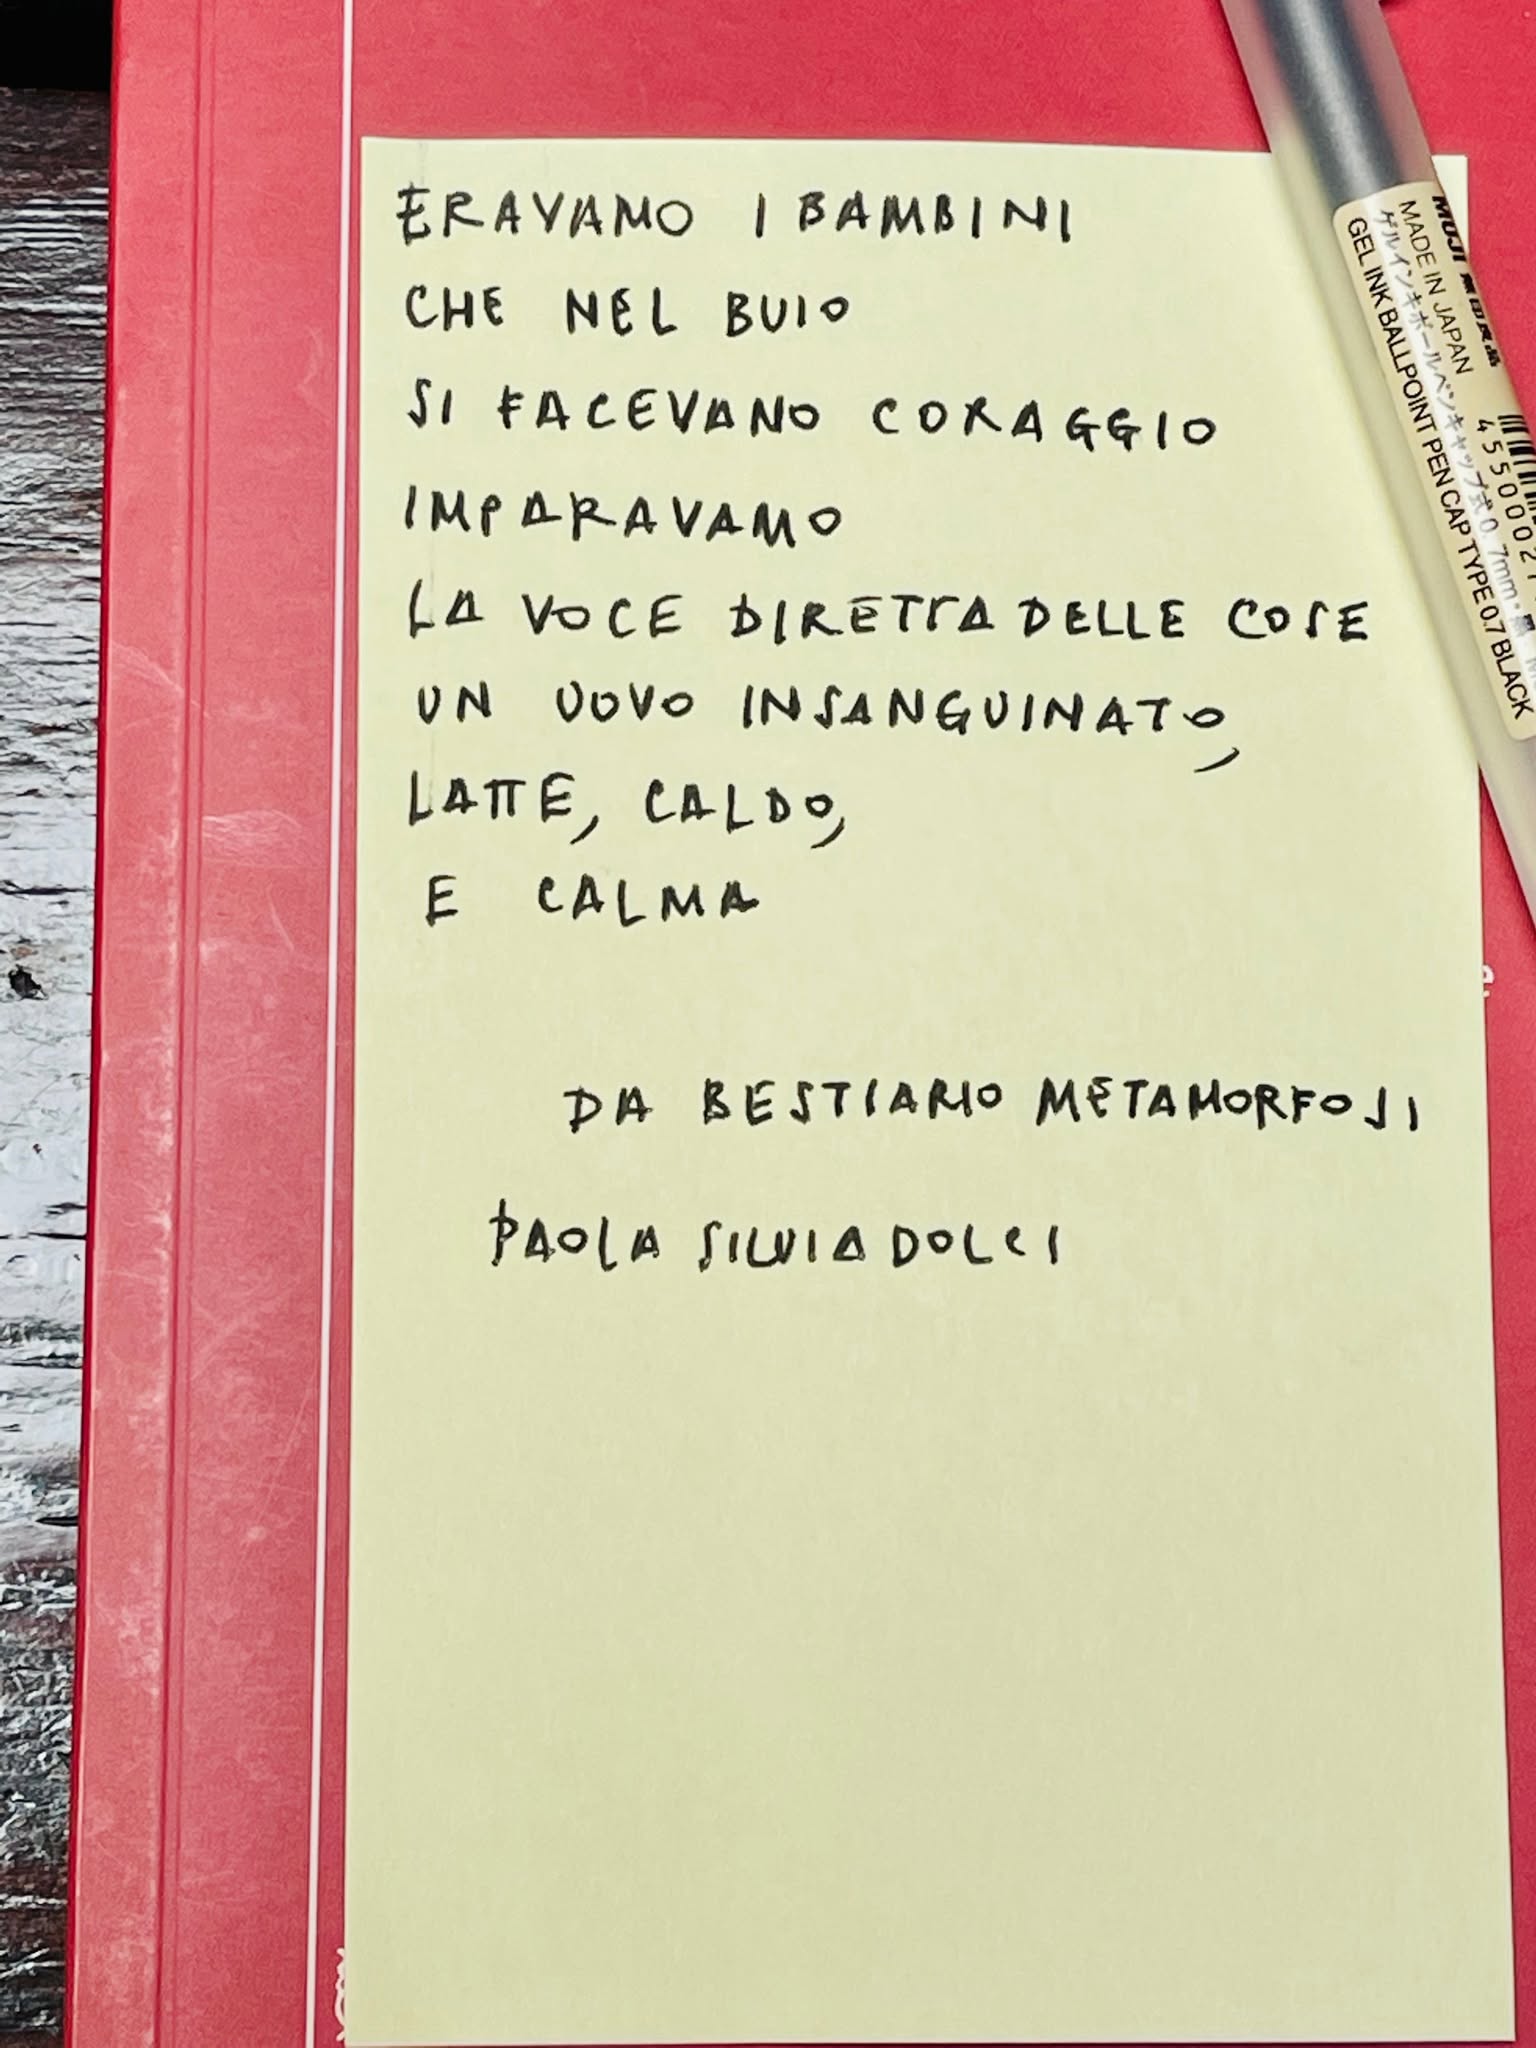 ERAVAMO I BAMBINI
CHE NEL BUIO
SI FACEVANO CORAGGIO
IMPARAVAMO
LA VOCE DIRETTA DELLE COSE
UN UOVO INSANGUINATO,
LATTE, CALDO,
E CALMA
DA BESTIARIO METAMORFOSI
PAOLA SILVIA DOLCI
MUJI 無印良品
MADE IN JAPAN
ゲルインキボールペンキャップ式0.7mm・黒
GEL INK BALLPOINT PEN CAP TYPE 0.7 BLACK
45500021